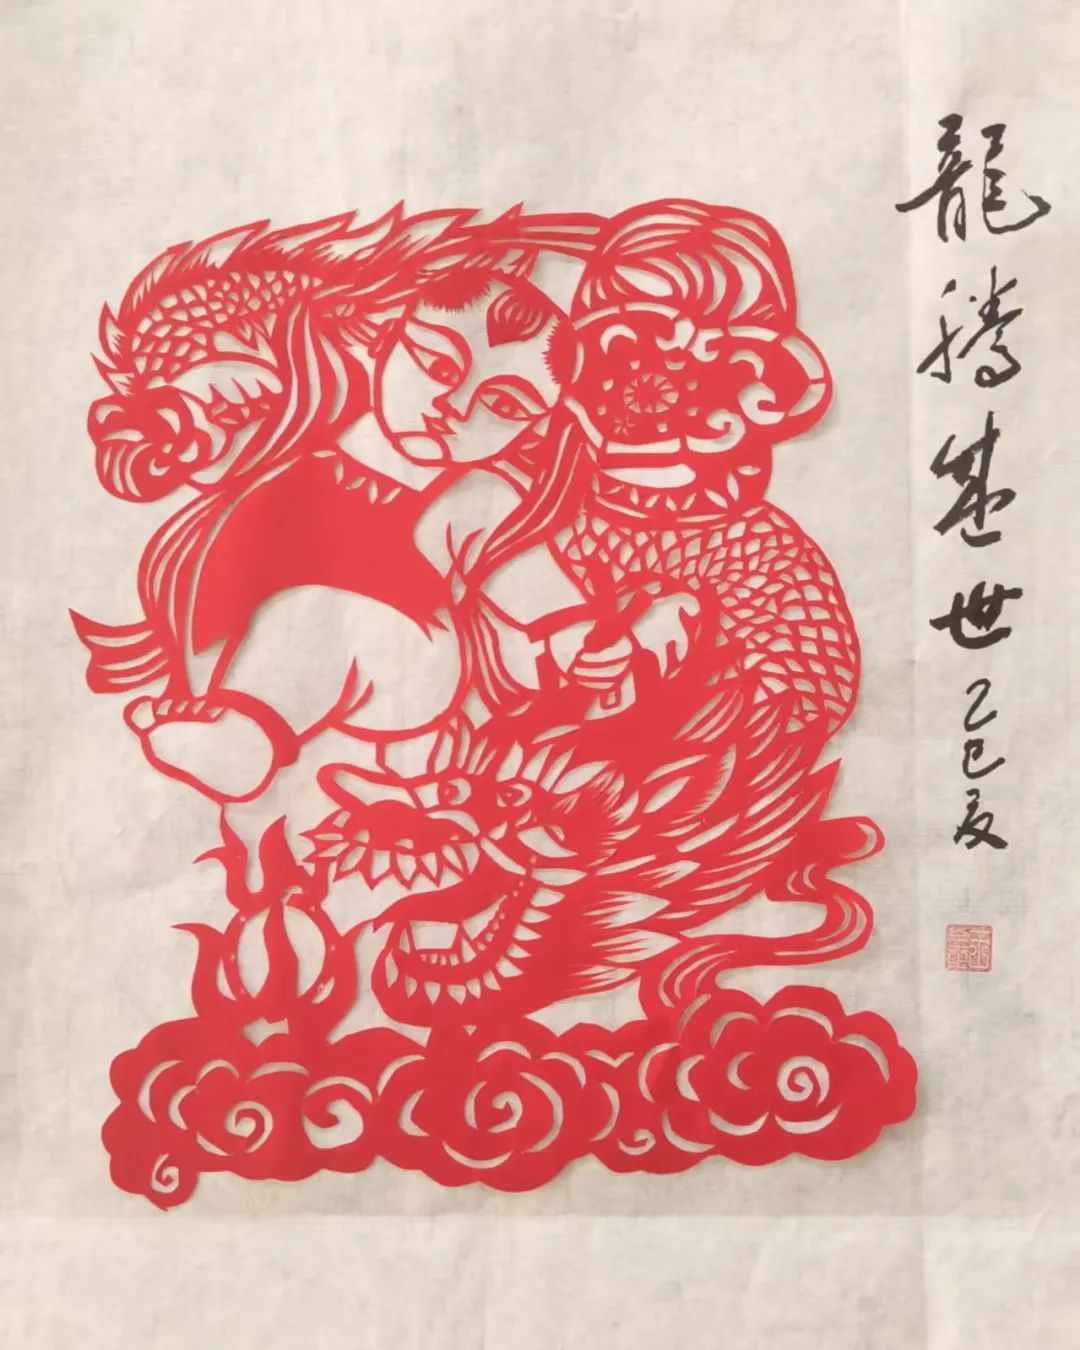 龍騰盛世
乙巳夏